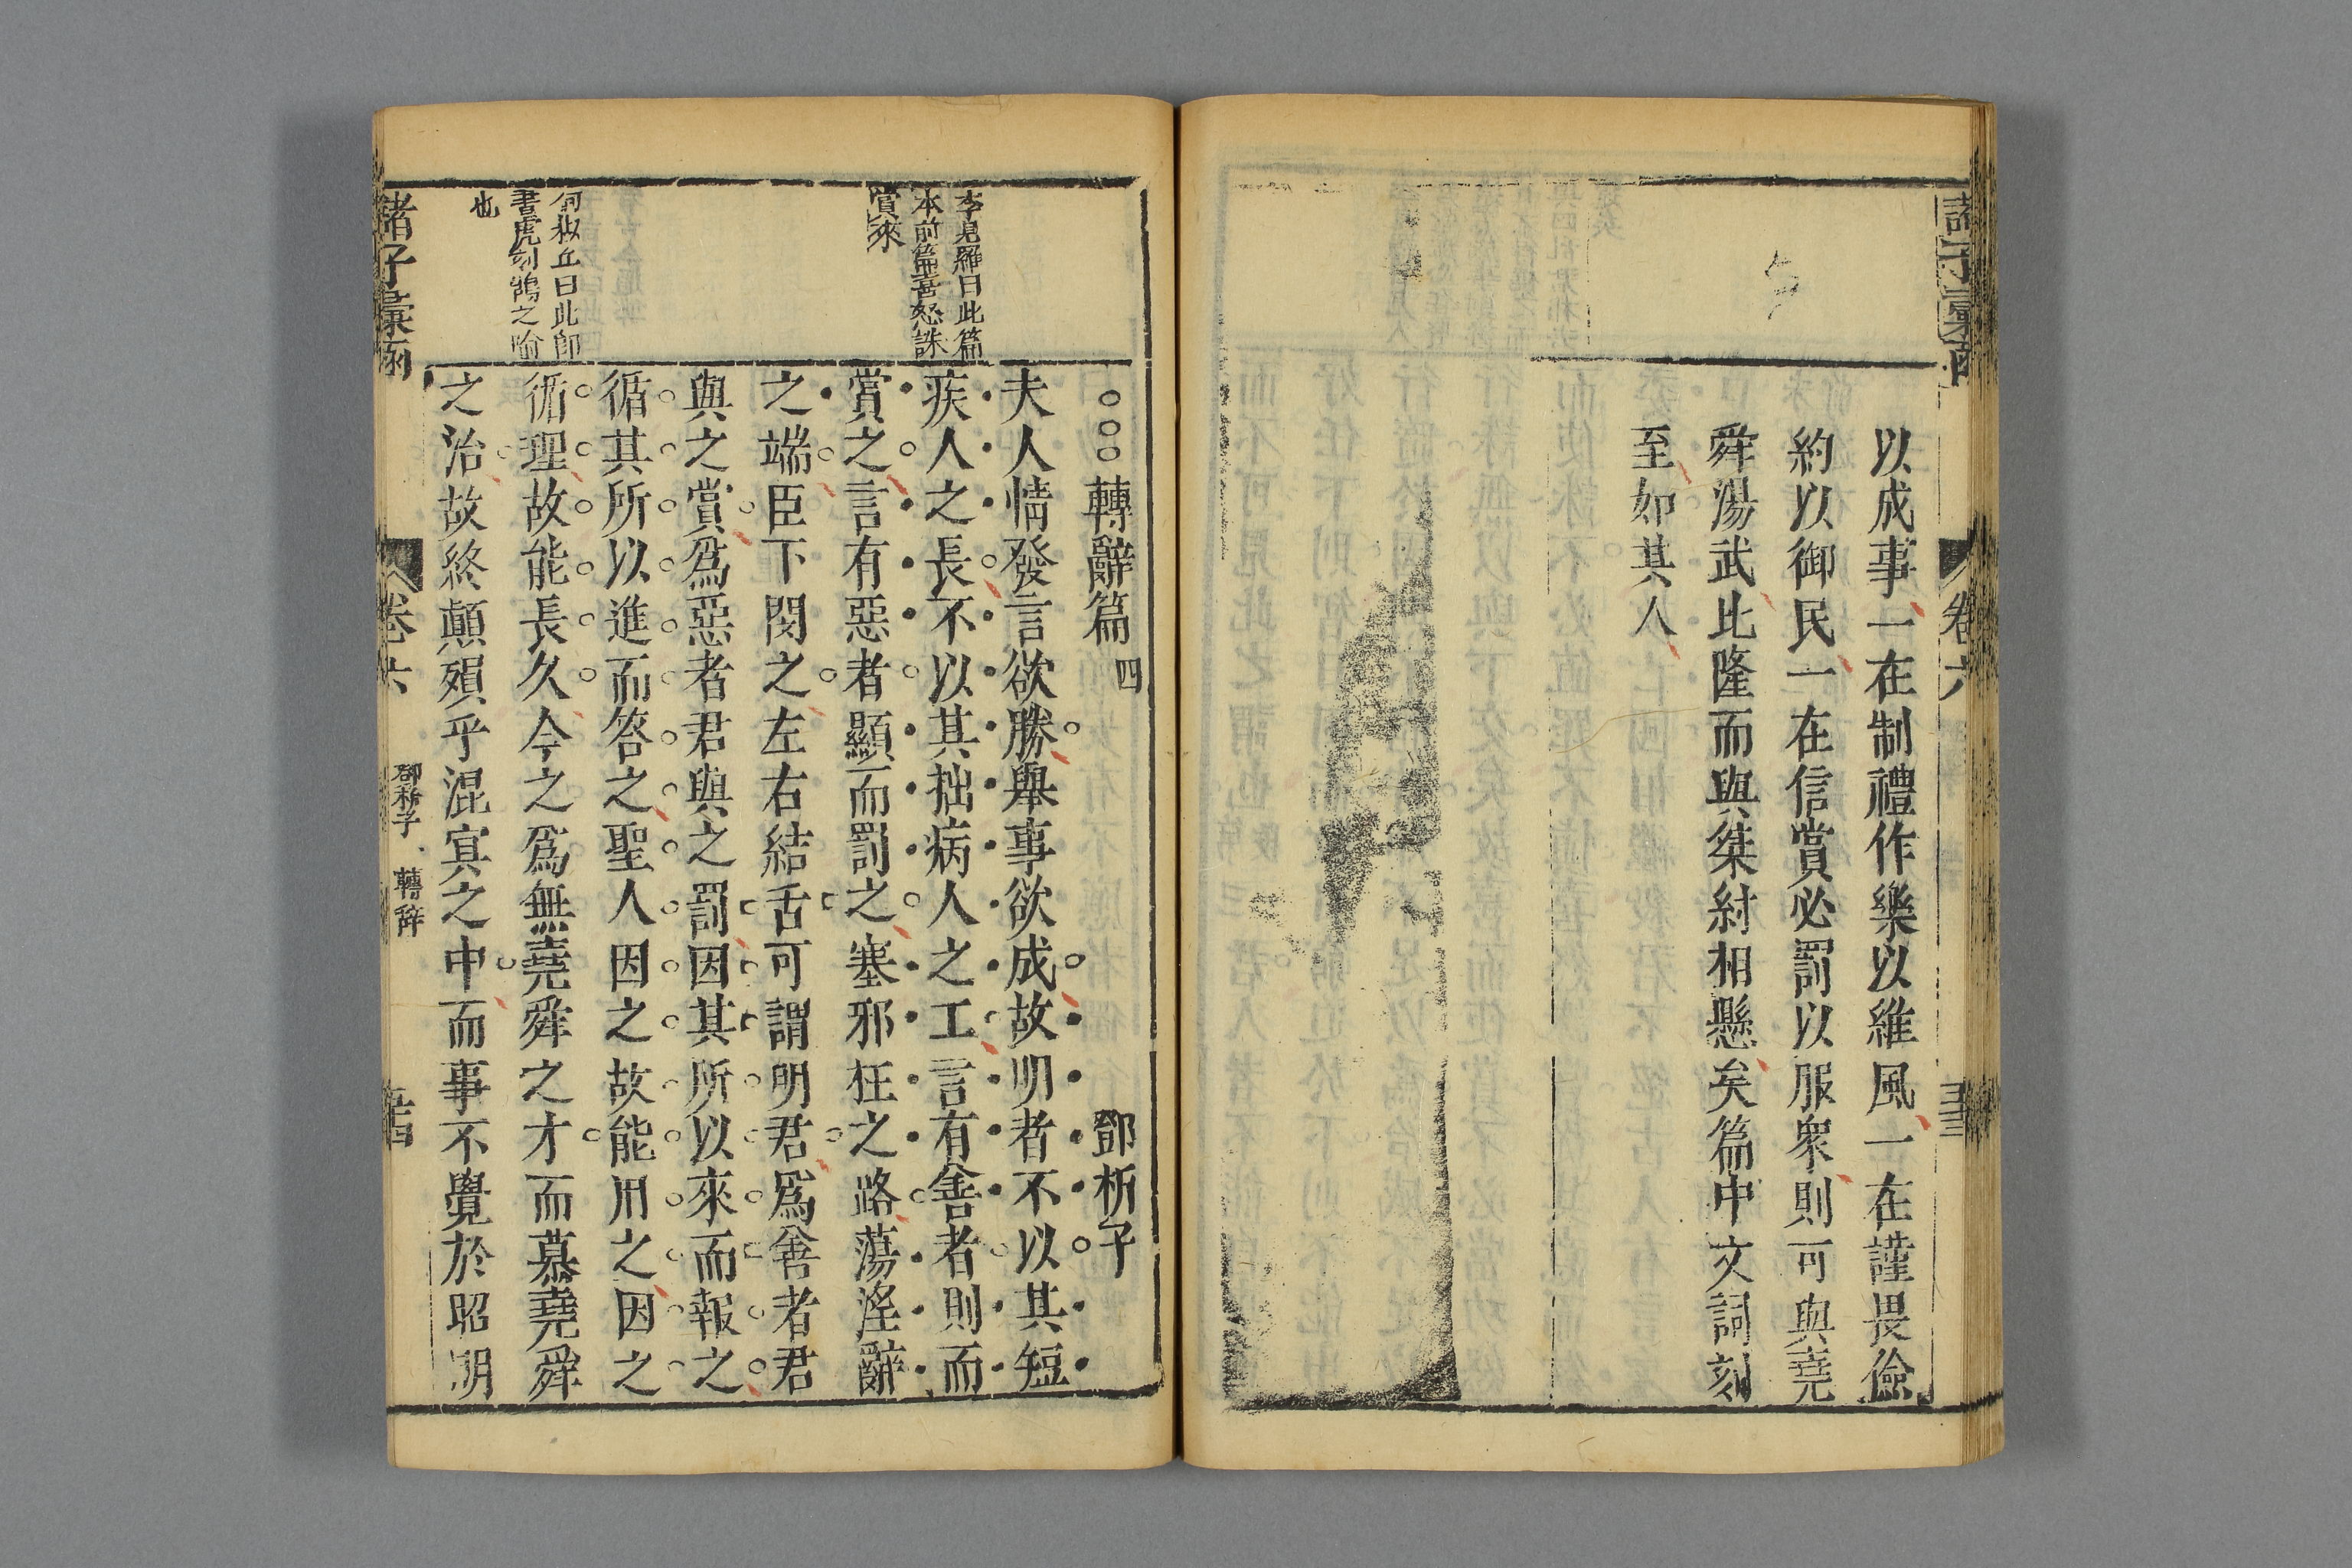 諸子彙函
卷六
以成事一在制禮作樂以維風一在謹畏儉
約以御民一在信賞必罰以服衆則可與堯
舜湯武比隆而與桀紂相懸矣篇中文詞刻
至如其人
轉辭篇 四 鄧析子
李見羅曰此篇
本前篇喜怒誅
賞來
夫人情發言欲勝舉事欲成故明者不以其短
疾人之長不以其拙病人之工言有善者則而
賞之言有惡者顯而罰之塞邪枉之路蕩淫辭
之端臣下閔之左右結舌可謂明君爲善者君
與之賞爲惡者君與之罰因其所以來而報之
循其所以進而答之聖人因之故能用之因之
循理故能長久今之爲無堯舜之才而慕堯舜
之治故終顛殞乎混冥之中而事不覺於昭明
何椒丘曰此卽
畫虎刻鵠之喻
也
諸子彙函
卷六
鄧析子
轉辭